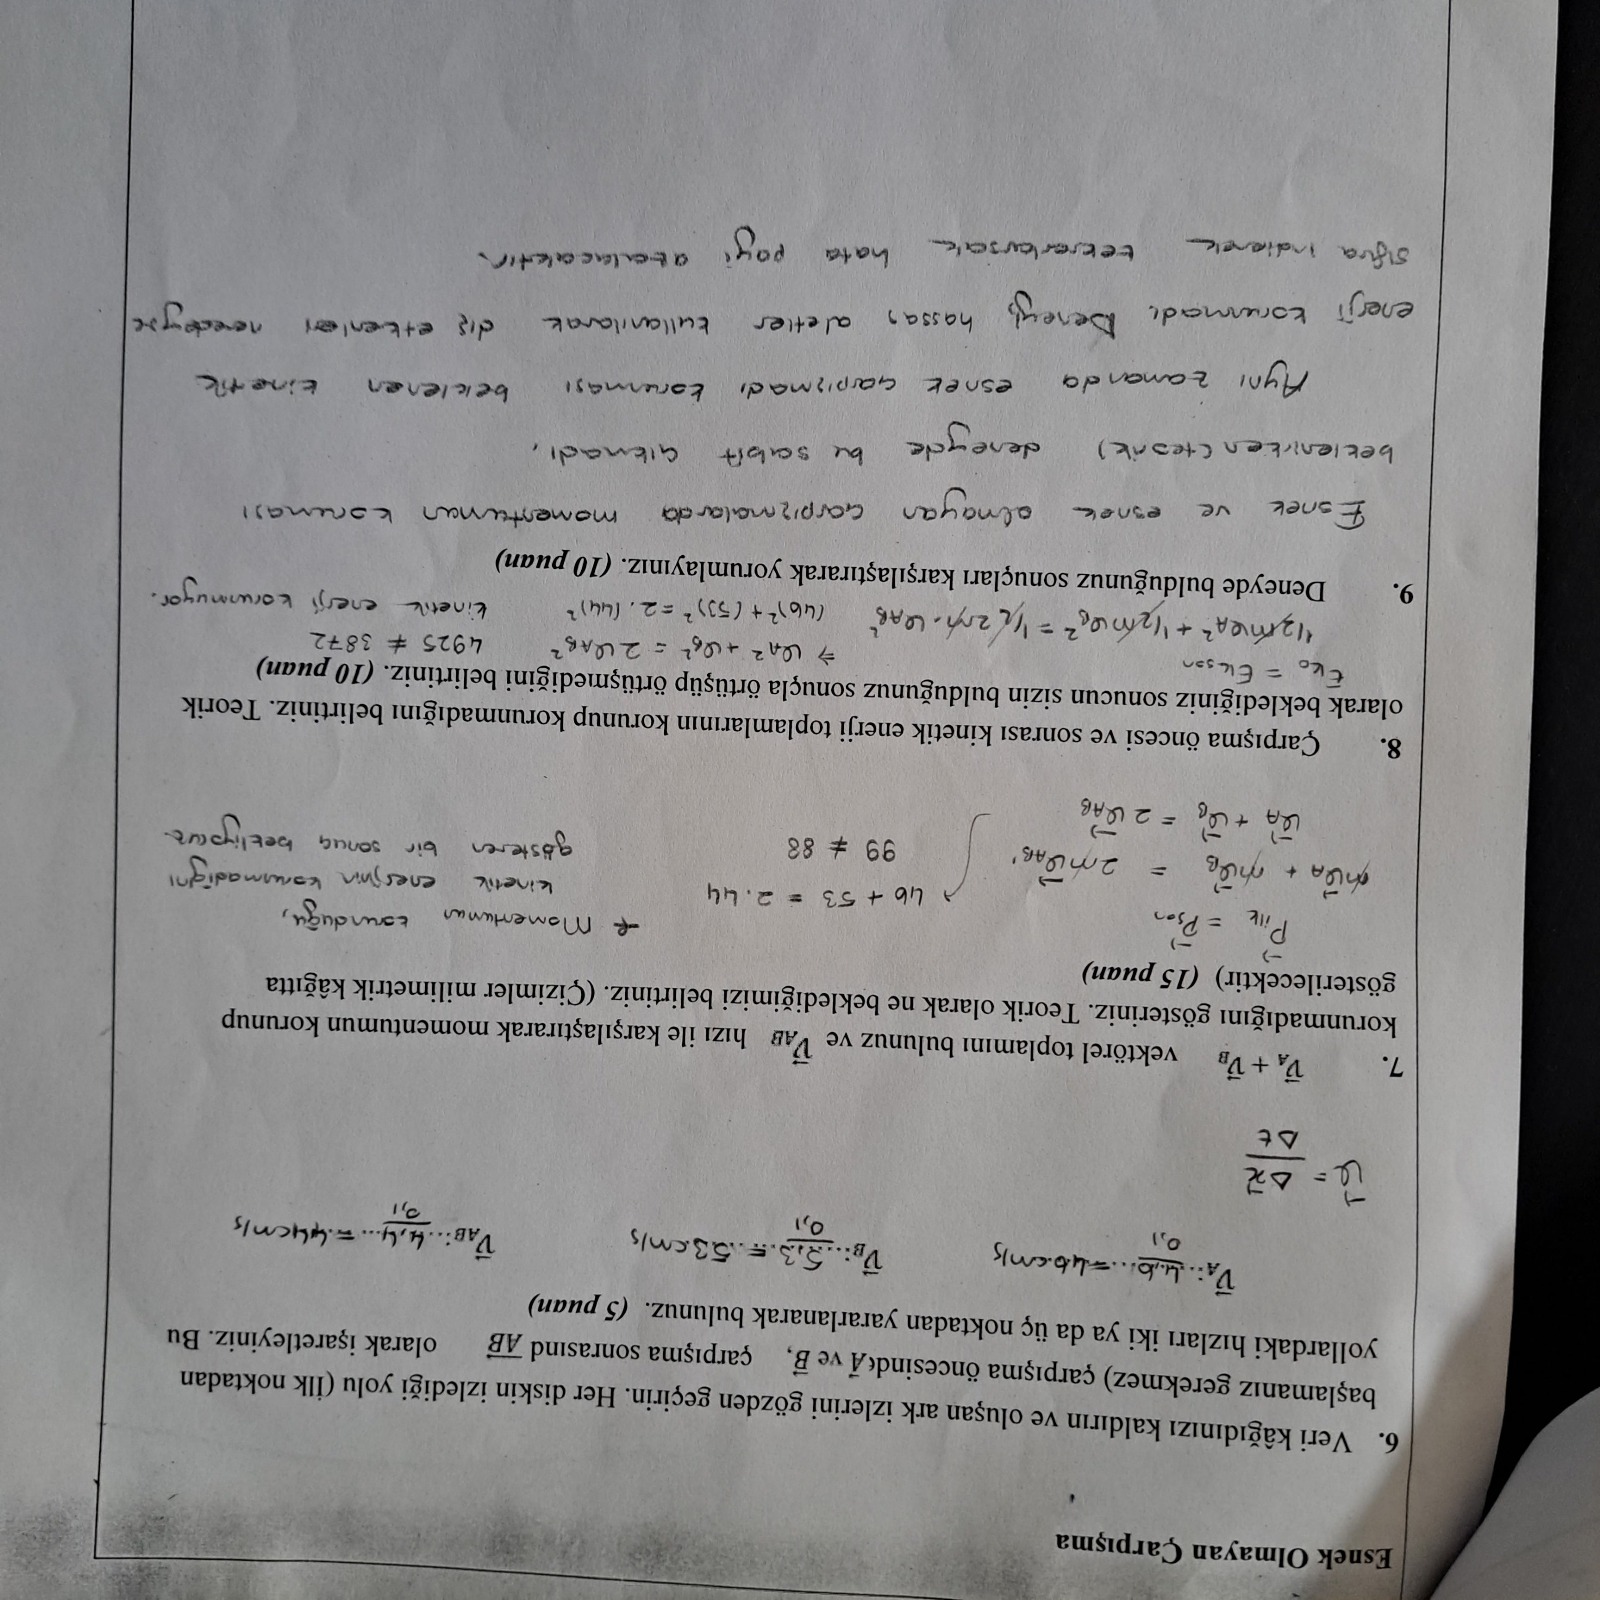 Esnek Olmayan Çarpışma
6. Veri kâğıdınızı kaldırın ve oluşan ark izlerini gözden geçirin. Her diskin izlediği yolu (İlk noktadan
başlamanız gerekmez) çarpışma öncesinde A⃗ ve B⃗, çarpışma sonrasınd A⃗B⃗ olarak işaretleyiniz. Bu
yollardaki hızları iki ya da üç noktadan yararlanarak bulunuz. (5 puan)
V⃗A:..4,6/0,1...=46.cm/s V⃗B:..5,3/0,1.=..53.cm/s V⃗AB:..4,4/0,1...=.44cm/s
ϑ⃗ = Δx⃗/Δt
7. V⃗A + V⃗B vektörel toplamını bulunuz ve V⃗AB hızı ile karşılaştırarak momentumun korunup
korunmadığını gösteriniz. Teorik olarak ne beklediğimizi belirtiniz. (Çizimler milimetrik kâğıtta
gösterilecektir) (15 puan)
P⃗ilk = P⃗son
mϑ⃗A + mϑ⃗B = 2mϑ⃗AB'
ϑ⃗A + ϑ⃗B = 2ϑ⃗AB
46 + 53 = 2.44
99 ≠ 88
* Momentumun korunduğu,
kinetik enerjinin korunmadığını
gösteren bir sonuç bekliyoruz.
8. Çarpışma öncesi ve sonrası kinetik enerji toplamlarının korunup korunmadığını belirtiniz. Teorik
olarak beklediğiniz sonucun sizin bulduğunuz sonuçla örtüşüp örtüşmediğini belirtiniz. (10 puan)
Eko = Ekson
1/2mϑA² + 1/2mϑB² = 1/2 2m.ϑAB²
⇒ ϑA² + ϑB² = 2ϑAB²
(46)² + (53)² = 2.(44)²
4925 ≠ 3872
kinetik enerji korunmuyor.
9. Deneyde bulduğunuz sonuçları karşılaştırarak yorumlayınız. (10 puan)
Esnek ve esnek olmayan çarpışmalarda momentumun korunası
beklenirken (teorik) deneyde bu sabit çıkmadı.
Aynı zamanda esnek çarpışmadı korunması beklenen kinetik
enerji korunmadı. Deneyi, hassas aletler kullanılarak dış etkenleri neredeyse
sıfıra indirerek tekrarlarsak hata payi azalacaktır.